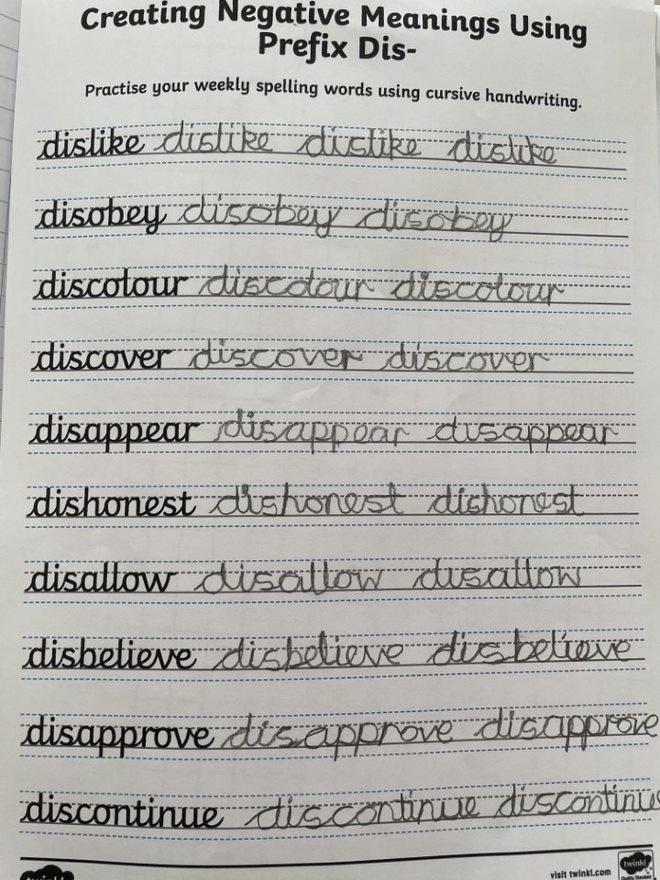 Creating Negative Meanings Using
Prefix Dis-
Practise your weekly spelling words using cursive handwriting.
dislike dislike dislike dislike
disobey disobey disobey
discolour discolour discolour
discover discover discover
disappear disappear disappear
dishonest dishonest dishonest
disallow disallow disallow
disbelieve disbelieve disbelieve
disapprove disapprove disapprove
discontinue discontinue discontinue
twinkl visit twinkl.com twinkl